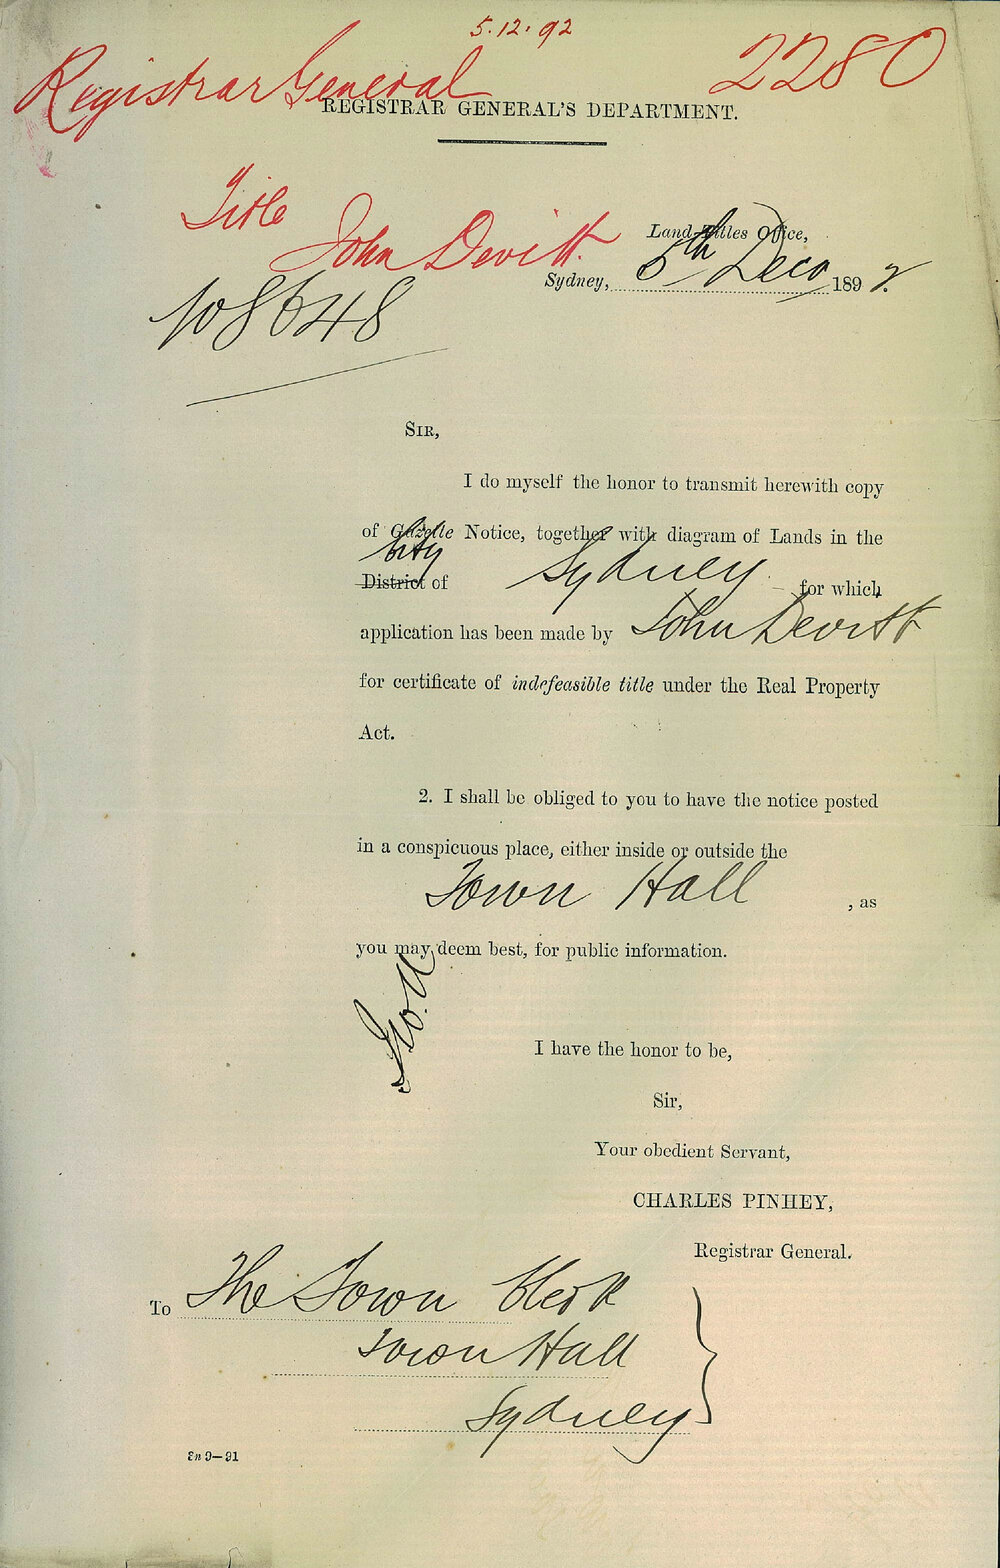 5.12.92
Registrar General 2280
REGISTRAR GENERAL'S DEPARTMENT.
Title
John Devitt.
Land Titles Office,
Sydney, 5th Decr 1892.
108648
SIR,
I do myself the honor to transmit herewith copy
of Gazette Notice, together with diagram of Lands in the
City
District of Sydney for which
application has been made by John Devitt
for certificate of indefeasible title under the Real Property
Act.
2. I shall be obliged to you to have the notice posted
in a conspicuous place, either inside or outside the
Town Hall , as
you may deem best, for public information.
I have the honor to be,
Sir,
Your obedient Servant,
CHARLES PINHEY,
Registrar General.
To The Town Clerk
Town Hall
Sydney
9—91